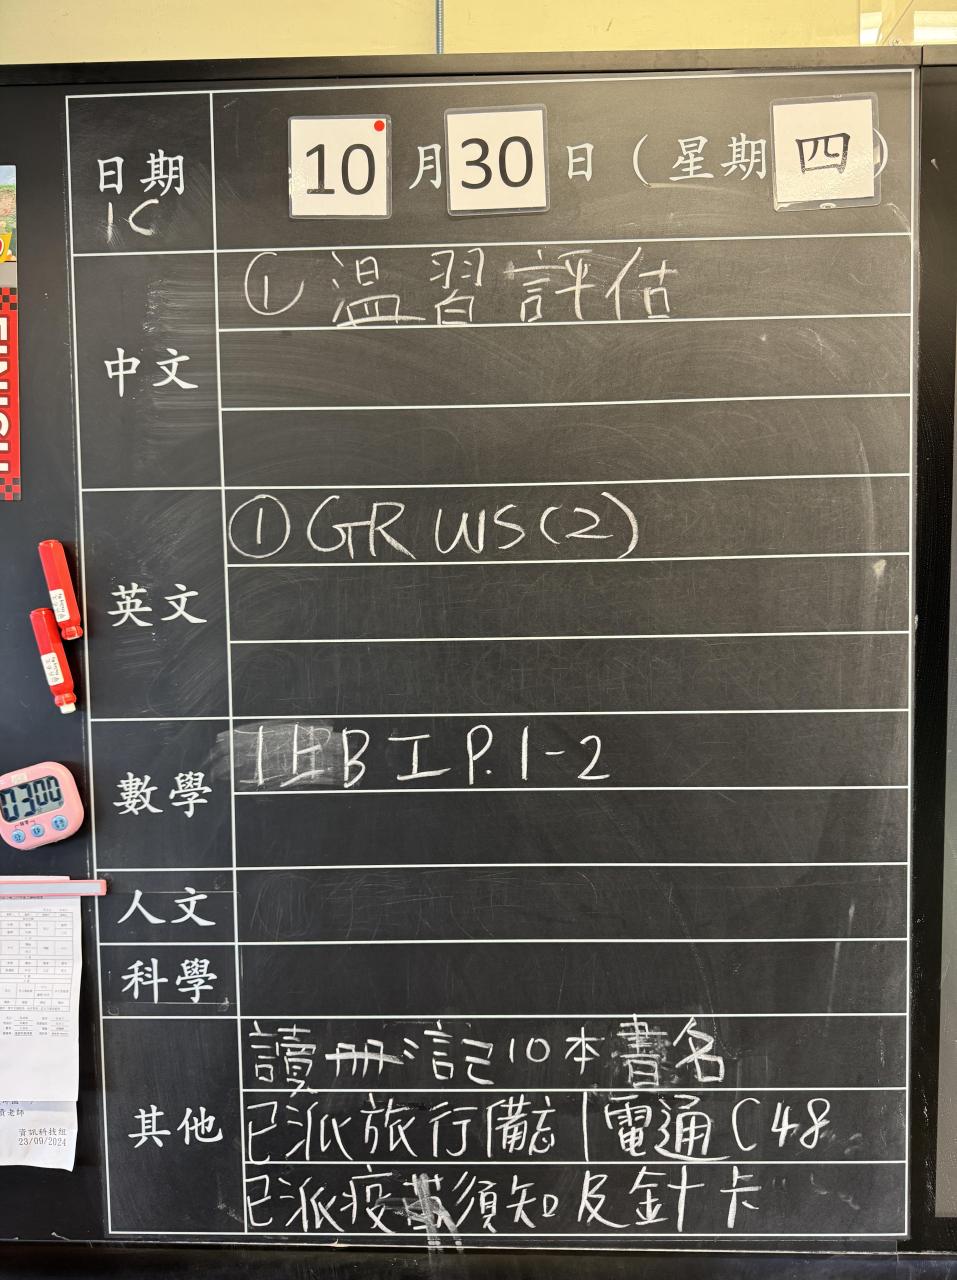 日期 10 月 30 日 ( 星期 四 )
1C
中文
① 温習評估
英文
① GR WS(2)
數學
1上B 工 P. 1-2
人文
科學
其他
讀冊 記10本書名
已派旅行備忘 | 電通 C48
已派疫苗須知及針卡
0300
老師
資訊科技組
23/09/2024